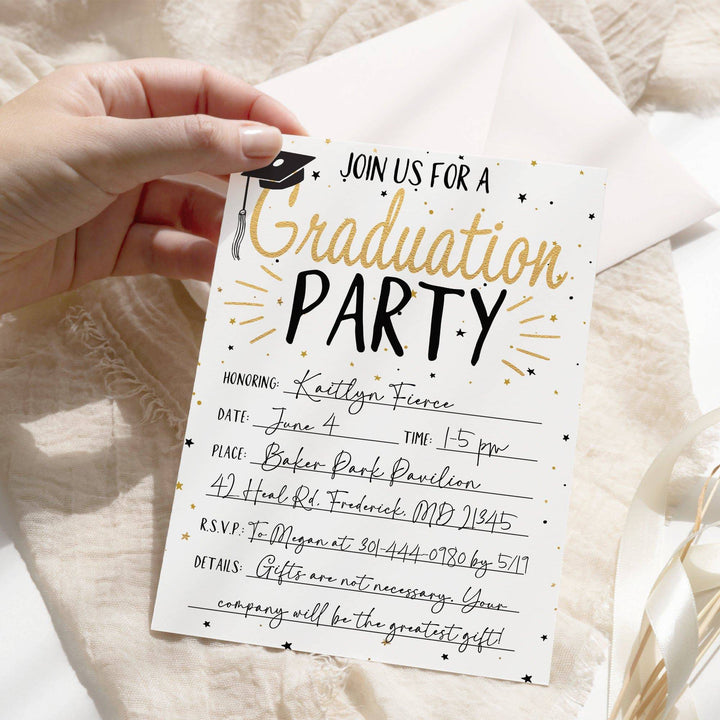 JOIN US FOR A
Graduation
PARTY
HONORING: Kaitlyn Fierce
DATE: June 4 TIME: 1-5 pm
PLACE: Baker Park Pavilion
42 Heal Rd, Frederick, MD 21345
R.S.V.P.: To Megan at 301-444-0980 by 5/19
DETAILS: Gifts are not necessary. Your
company will be the greatest gift!